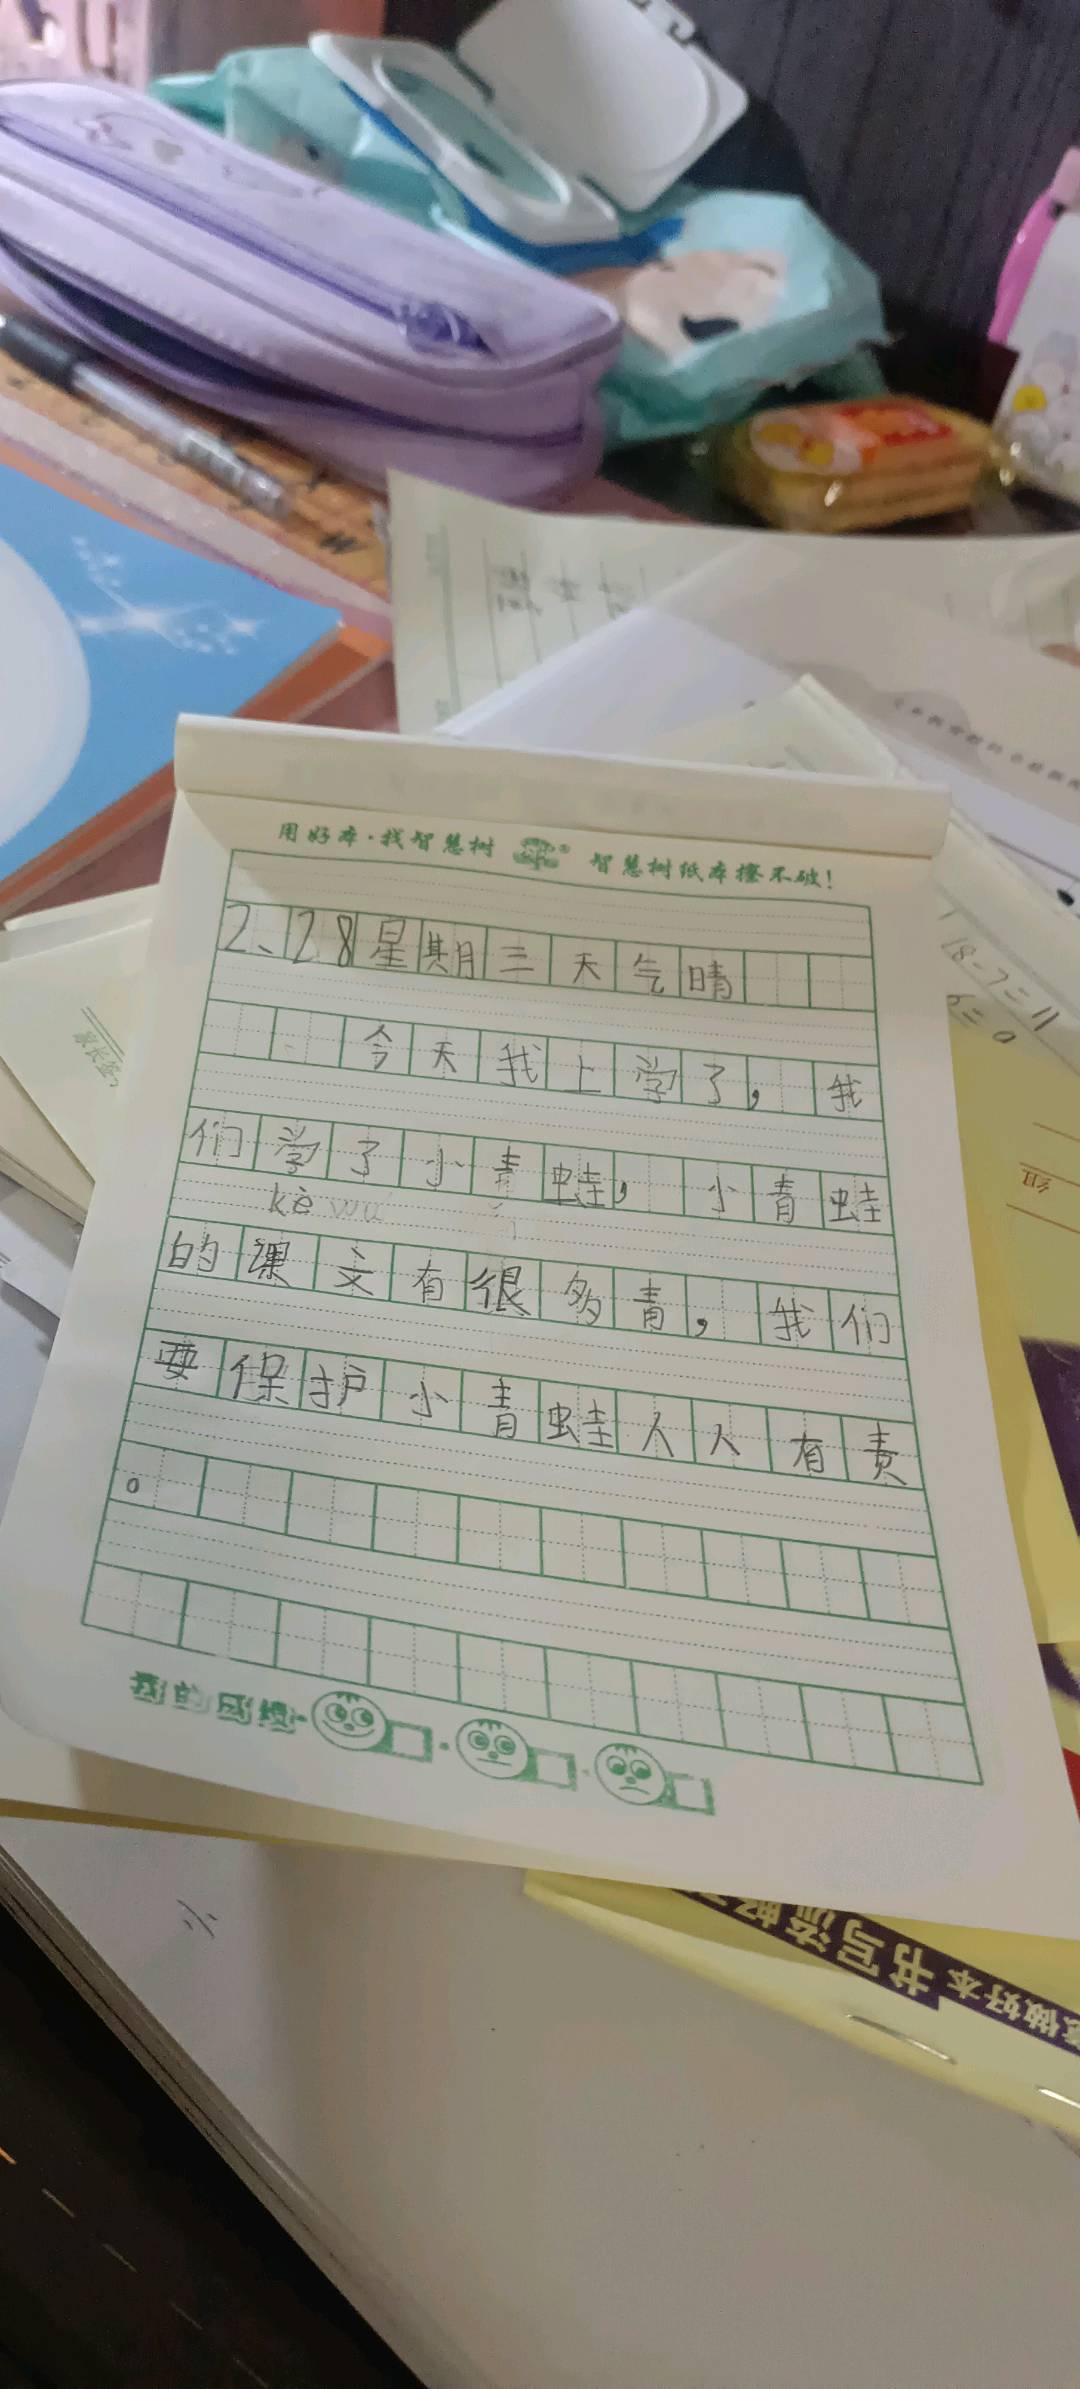 用好本·找智慧树 智慧树纸本擦不破!
2、28星期三天气晴
今天我上学了，我
们学了小青蛙，小青蛙
kè wú
的课文有很多青，我们
要保护小青蛙人人有责
。
我的成绩
18-7=11
家长签
组
书写
做好本